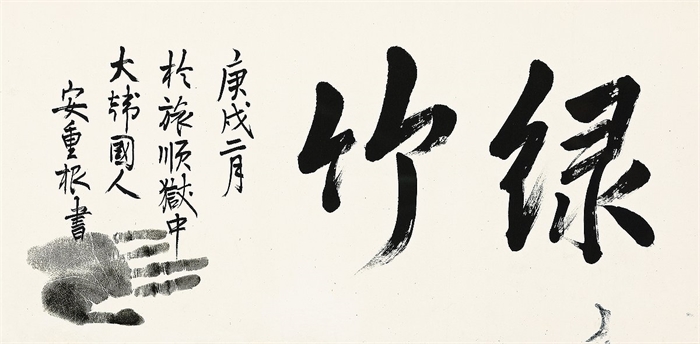 绿竹
庚戌二月
於旅顺獄中
大韩國人
安重根書